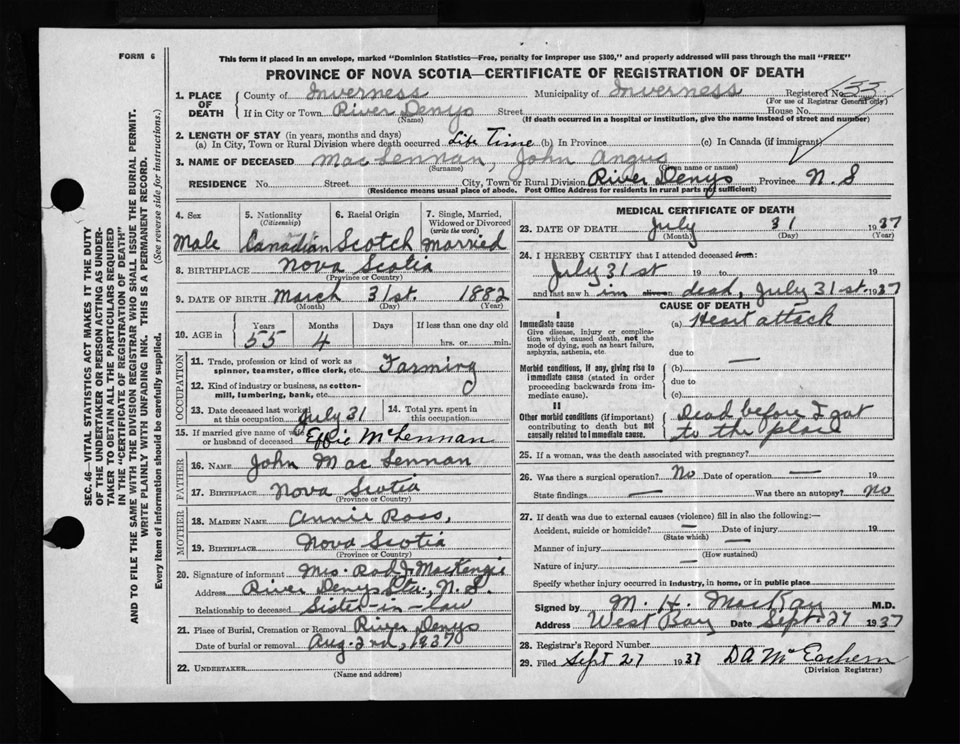 FORM 6
This form if placed in an envelope, marked "Dominion Statistics—Free, penalty for improper use $300," and properly addressed will pass through the mail "FREE"
PROVINCE OF NOVA SCOTIA—CERTIFICATE OF REGISTRATION OF DEATH
1. PLACE OF DEATH
County of Inverness Municipality of Inverness Registered No. 133
(For use of Registrar General only)
If in City or Town River Denys Street House No.
(Name) (If death occurred in a hospital or institution, give the name instead of street and number)
2. LENGTH OF STAY (in years, months and days)
(a) In City, Town or Rural Division where death occurred Life Time (b) In Province (c) In Canada (if immigrant)
3. NAME OF DECEASED MacLennan, John Angus
(Surname) (Given name or names)
RESIDENCE No. Street City, Town or Rural Division River Denys Province N. S
(Residence means usual place of abode. Post Office Address for residents in rural parts not sufficient)
4. Sex 5. Nationality 6. Racial Origin 7. Single, Married, Widowed or Divorced
(Citizenship) (write the word)
Male Canadian Scotch Married
8. BIRTHPLACE Nova Scotia
(Province or Country)
9. DATE OF BIRTH March 31st. 1882
(Month) (Day) (Year)
10. AGE in Years Months Days If less than one day old
55 4 hrs. or min.
OCCUPATION
11. Trade, profession or kind of work as spinner, teamster, office clerk, etc. Farming
12. Kind of industry or business, as cotton-mill, lumbering, bank, etc.
13. Date deceased last worked at this occupation July 31 14. Total yrs. spent in this occupation
15. If married give name of wife or husband of deceased Effie McLennan
FATHER
16. NAME John MacLennan
17. BIRTHPLACE Nova Scotia
(Province or Country)
MOTHER
18. MAIDEN NAME Annie Ross,
19. BIRTHPLACE Nova Scotia
(Province or Country)
20. Signature of informant Mrs. Rod J. MacKenzie
Address River Denys Sta., N. S.
Relationship to deceased Sister-in-law
21. Place of Burial, Cremation or Removal River Denys
Date of burial or removal Aug. 2nd, 1937
22. UNDERTAKER
(Name and address)
MEDICAL CERTIFICATE OF DEATH
23. DATE OF DEATH July 31 1937
(Month) (Day) (Year)
24. I HEREBY CERTIFY that I attended deceased from:
July 31st 19 to 19
and last saw him alive on dead, July 31st. 1937
CAUSE OF DEATH
I
Immediate cause
Give disease, injury or complication which caused death, not the mode of dying, such as heart failure, asphyxia, asthenia, etc.
(a) Heart attack
due to —
Morbid conditions, if any, giving rise to immediate cause (stated in order proceeding backwards from immediate cause).
(b)
due to
(c)
II
Other morbid conditions (if important) contributing to death but not causally related to immediate cause.
Dead before I got
to the place
25. If a woman, was the death associated with pregnancy?
26. Was there a surgical operation? No Date of operation — 19
State findings — Was there an autopsy? no
27. If death was due to external causes (violence) fill in also the following:—
Accident, suicide or homicide? — Date of injury 19
(State which)
Manner of injury —
(How sustained)
Nature of injury —
Specify whether injury occurred in industry, in home, or in public place
Signed by M. H. MacKay M.D.
Address West Bay Date Sept. 27 1937
28. Registrar's Record Number
29. Filed Sept 27 1937 D A McEachern
(Division Registrar)
SEC. 46—VITAL STATISTICS ACT MAKES IT THE DUTY
OF THE UNDERTAKER OR PERSON ACTING AS UNDER-
TAKER TO OBTAIN ALL THE PARTICULARS REQUIRED
IN THE "CERTIFICATE OF REGISTRATION OF DEATH"
AND TO FILE THE SAME WITH THE DIVISION REGISTRAR WHO SHALL ISSUE THE BURIAL PERMIT.
WRITE PLAINLY WITH UNFADING INK. THIS IS A PERMANENT RECORD.
Every item of information should be carefully supplied. (See reverse side for instructions.)